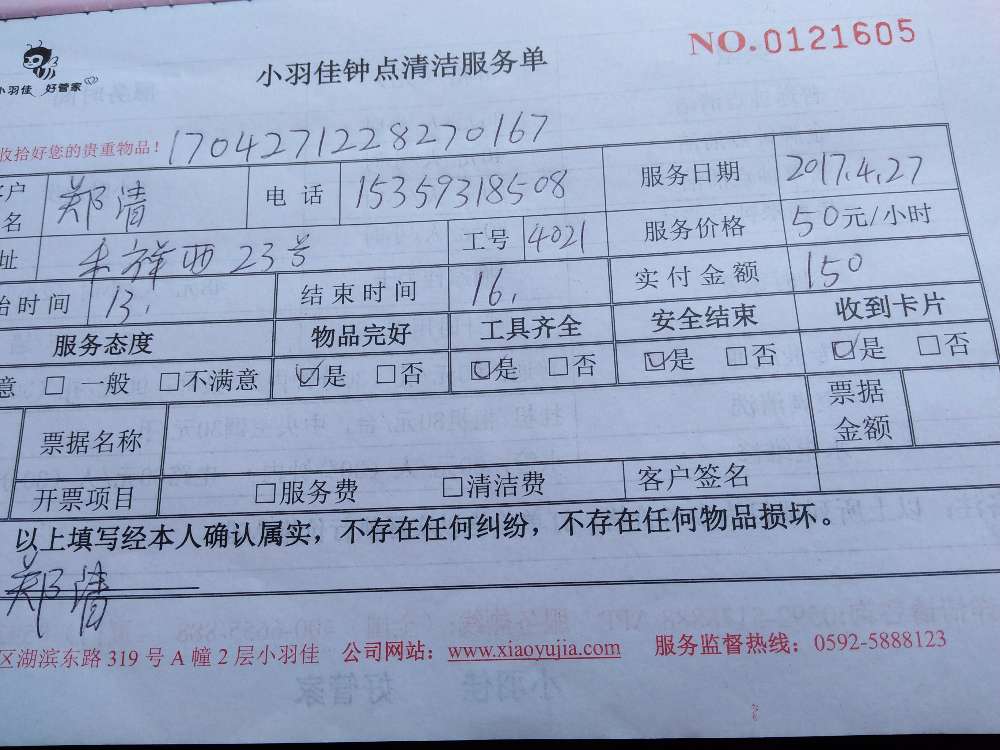 NO.0121605
小羽佳 好管家
小羽佳钟点清洁服务单
收拾好您的贵重物品! 1704271228270167
客户名 郑清 电话 15359318508 服务日期 2017.4.27
址 祥西23号 工号 4021 服务价格 50元/小时
始时间 13. 结束时间 16. 实付金额 150
服务态度 物品完好 工具齐全 安全结束 收到卡片
意 □ 一般 □不满意 ☑是 □否 ☑是 □否 ☑是 □否 ☑是 □否
票据名称 票据金额
开票项目 □服务费 □清洁费 客户签名
以上填写经本人确认属实，不存在任何纠纷，不存在任何物品损坏。
郑清
区湖滨东路 319 号 A 幢 2 层小羽佳 公司网站：www.xiaoyujia.com 服务监督热线：0592-5888123